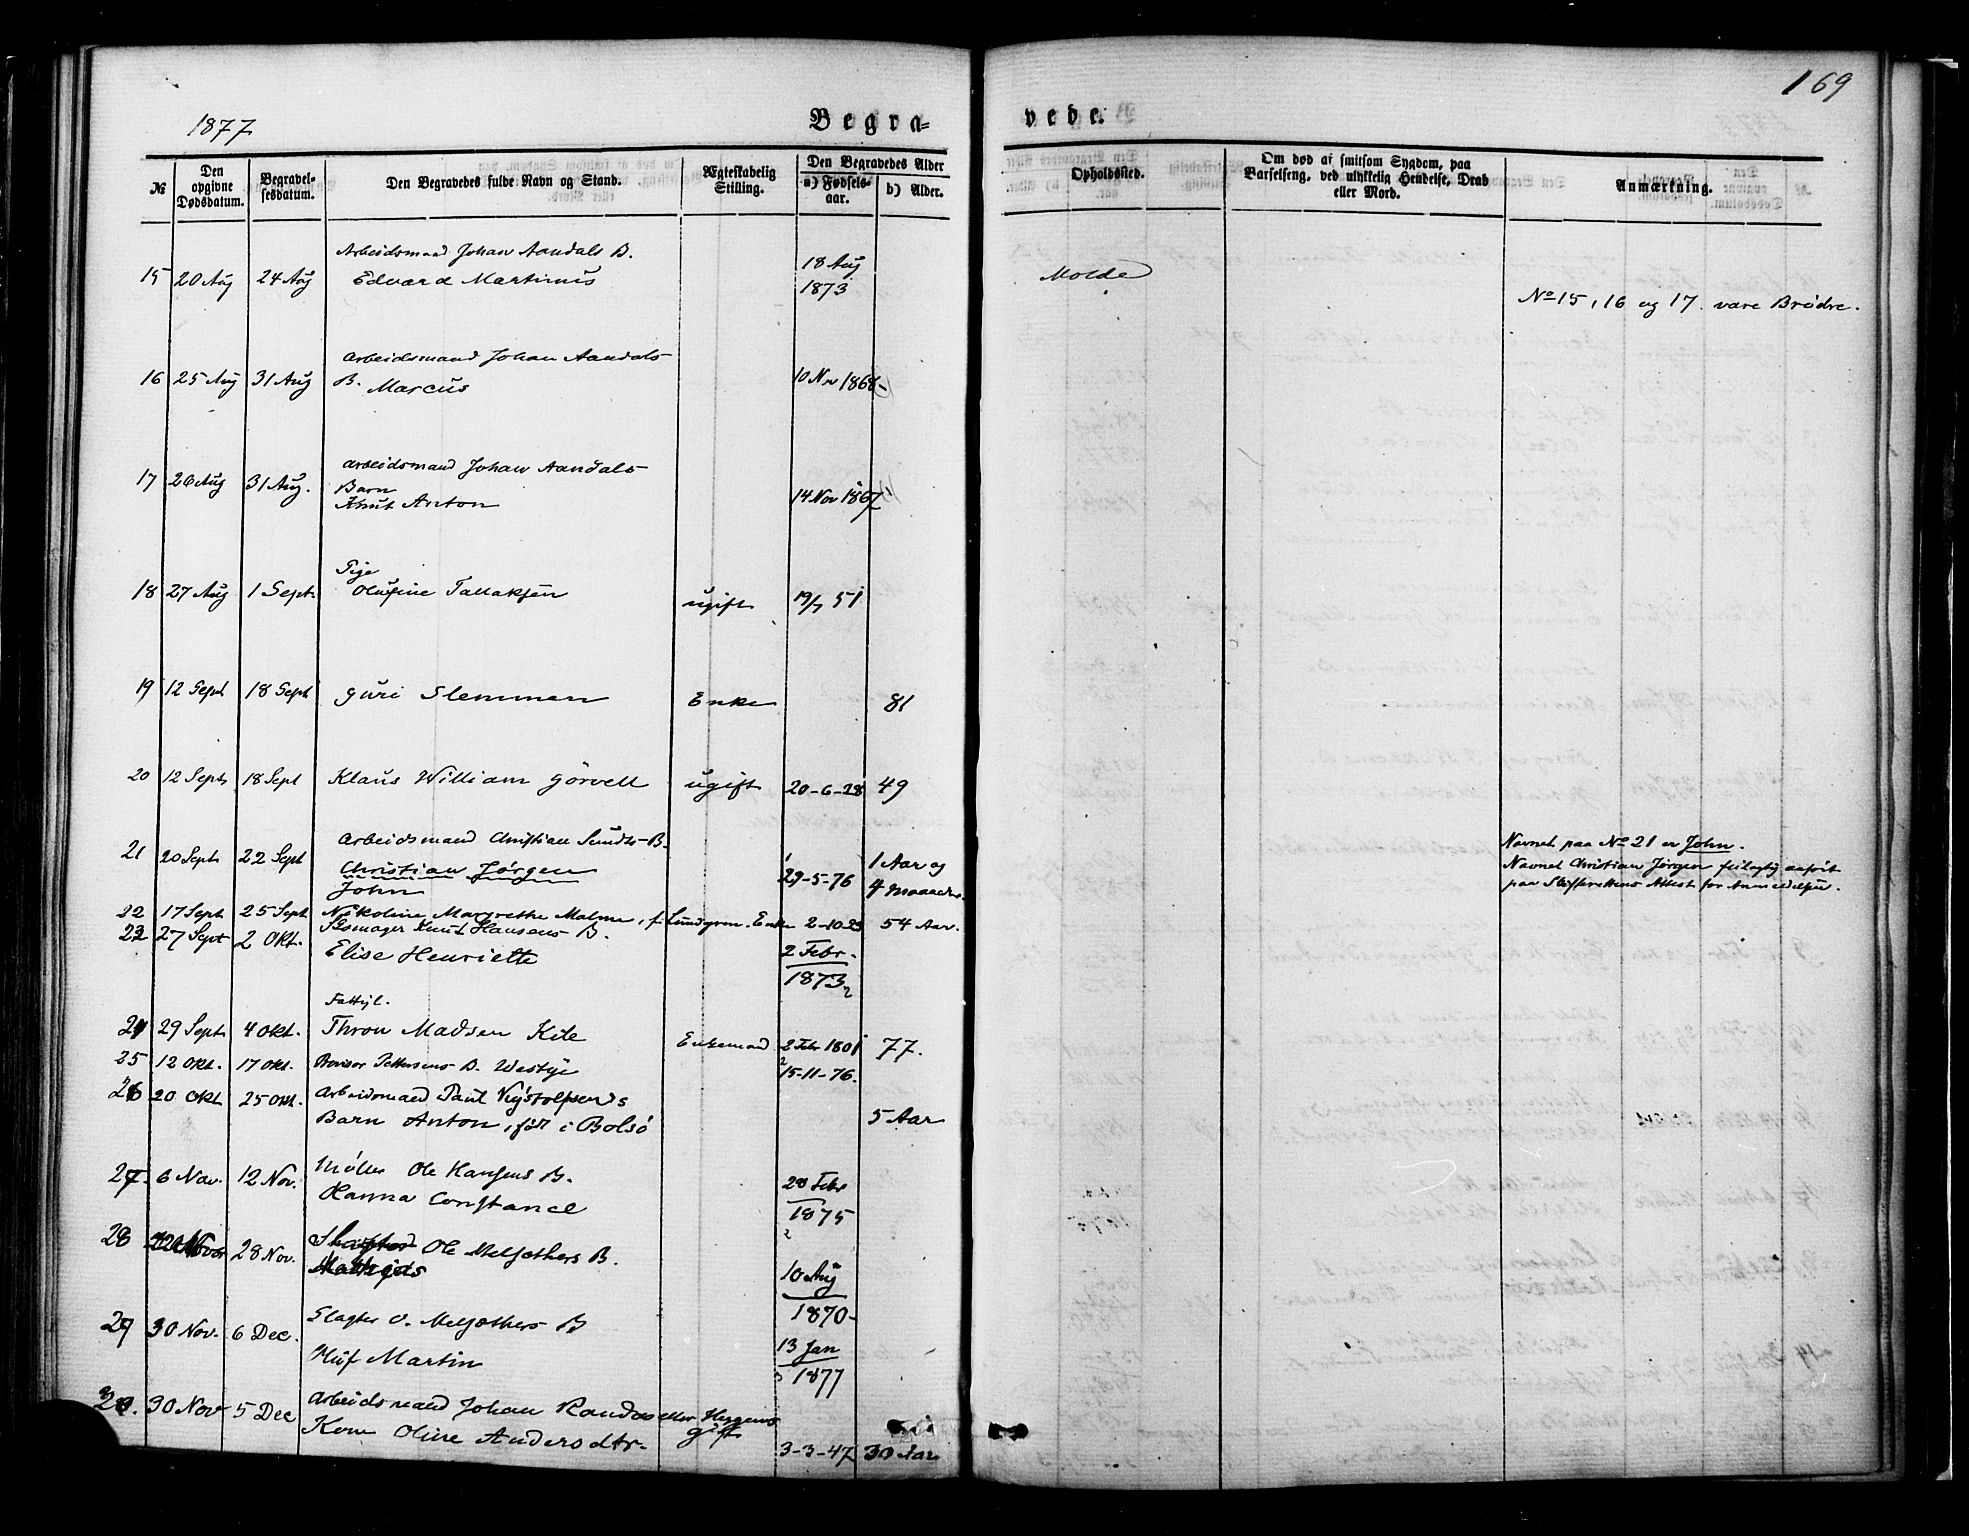 1877
Begra-
vede.
169
№
Den opgivne Dødsdatum.
Begravel-sesdatum.
Den Begravedes fulde Navn og Stand.
Ægteskabelig Stilling.
Den Begravedes Alder
a) Fødsels-aar.
b) Alder.
Opholdssted.
Om død af smitsom Sygdom, paa Barselseng, ved ulykkelig Hendelse, Drab eller Mord.
Anmærkning.
Arbeidsmand Johan Aandals B.
15 20 Aug 24 Aug Edvard Martinus 18 Aug 1873 Molde
No 15, 16 og 17 vare Brødre.
Arbeidsmand Johan Aandals
16 25 Aug 31 Aug B. Marcus 10 Nov 1868
Arbeidsmand Johan Aandals
17 26 Aug 31 Aug. Barn
Knut Anton 14 Nov 1867
Pige
18 27 Aug 1 Sept. Olufine Tallaksen ugift 19/7 51
19 12 Sept 18 Sept Guri Slemmen Enke 81
20 12 Sept 18 Sept Klaus William Görvell ugift 20-6-28 49
Arbeidsmand Christian Sunds B.
21 20 Sept 22 Sept Christian Jørgen 29-5-76 1 Aar og
John 4 Maaneder.
Navnet paa No 21 er John.
Navnet Christian Jørgen feilagtig anført
paa Skifterettens Attest for Anmeldelsen.
22 17 Sept 25 Sept Nikoline Margrethe Malme, f. Lundgren. Enke 2-10-23 54 Aar.
23 27 Sept 2 Okt. Skomager Knut Hansens B.
Elise Henriette 2 Febr. 1873
Fattigl.
24 29 Sept 4 Okt. Thron Madsen Kile Enkemand 2 Febr 1801 77.
25 12 Okt. 17 Okt. Provisor Pettersens B. Westye 15-11-76.
26 20 Okt 25 Okt. Arbeidsmand Paul
Barn Anton, født i Bolsö 5 Aar
27. 6 Nov. 12 Nov. Møller Ole Hansens B.
Hanna Constance 28 Febr 1875
28 28 Nov. Ole Melsæthers B.
10 Aug 1870
29 30 Nov. 6 Dec. Slagter O. Melsæthers B
Oluf Martin 13 Jan 1877
30. 30 Nov 5 Dec Arbeidsmand Johan Randas eller Heggems
Kone Oline Andersdtr. gift 3-3-47 30 Aar